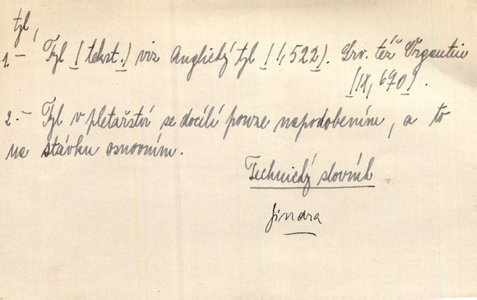 tyl,
1.- Tyl [tekst.] viz Anglický tyl [I, 522]. Srv. též Organtin
[IX, 670].
2.- Tyl v pletařství se docílí pouze napodobením, a to
na stávku osnovním.
Technický slovník
Jindra